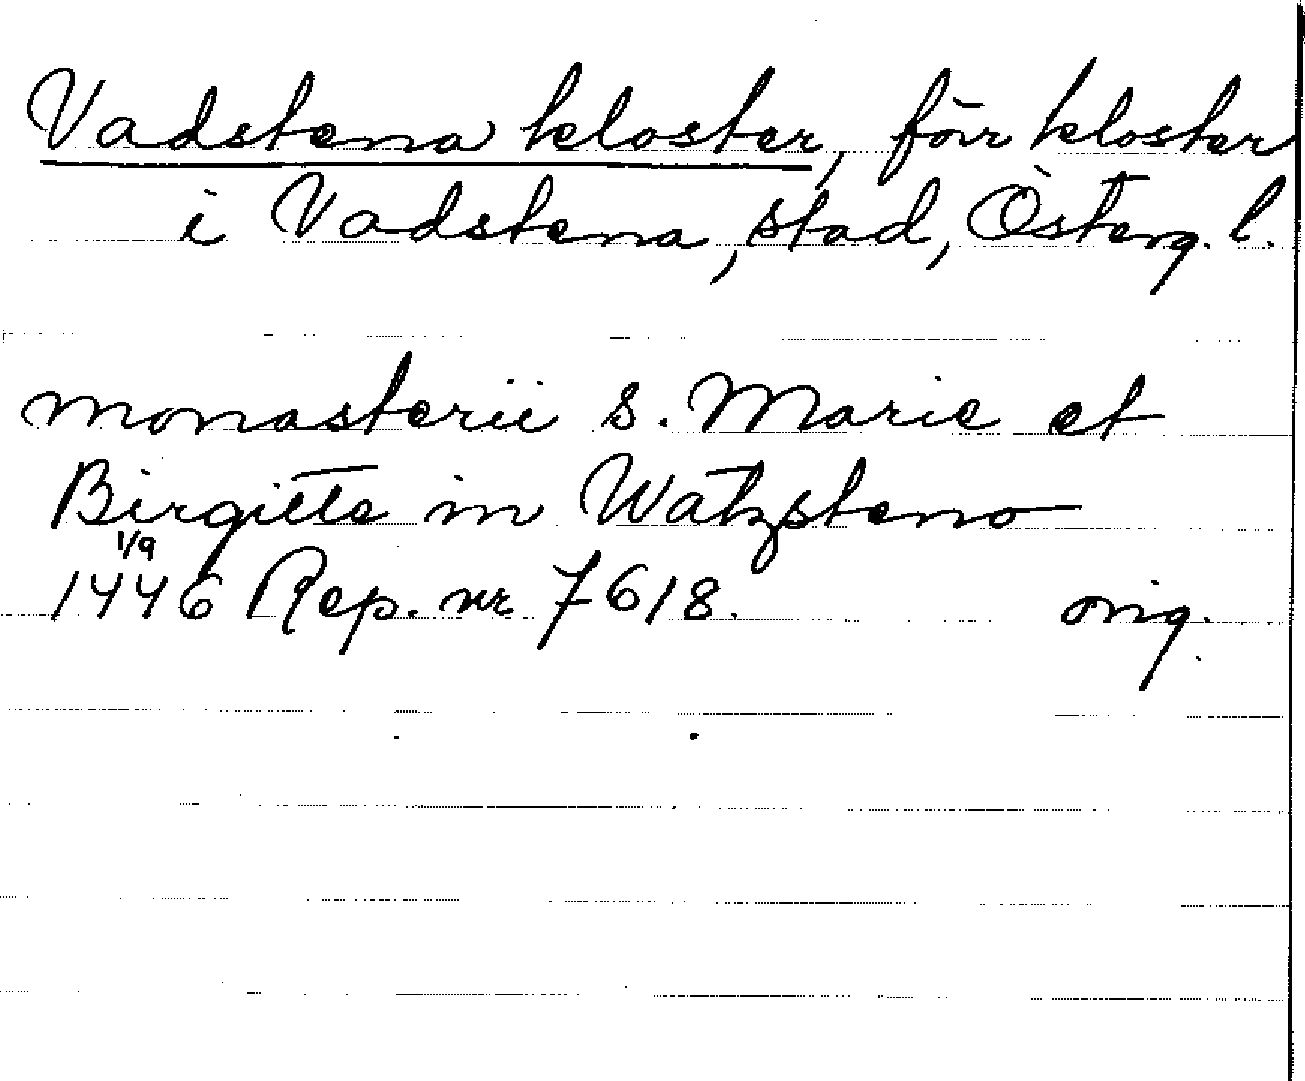 Vadstena kloster, förr kloster
i Vadstena, stad, Österg. l.
monasterii s. Marie et
Birgitte in Watzsteno
1/9
1446 Rep. nr 7618. orig.